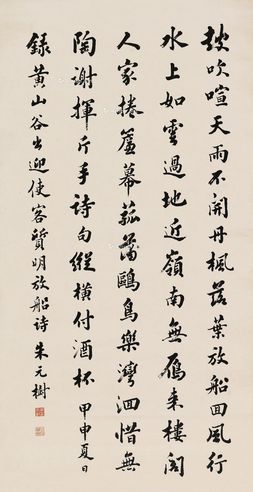 鼓吹喧天雨不開丹楓落葉放船回風行
水上如雲過地近嶺南無雁来樓閣
人家捲簾幕菰蒲鷗鳥樂灣洄惜無
陶謝揮斤手詩句縱橫付酒杯 甲申夏日
録黃山谷出迎使客質明放船詩 朱元樹